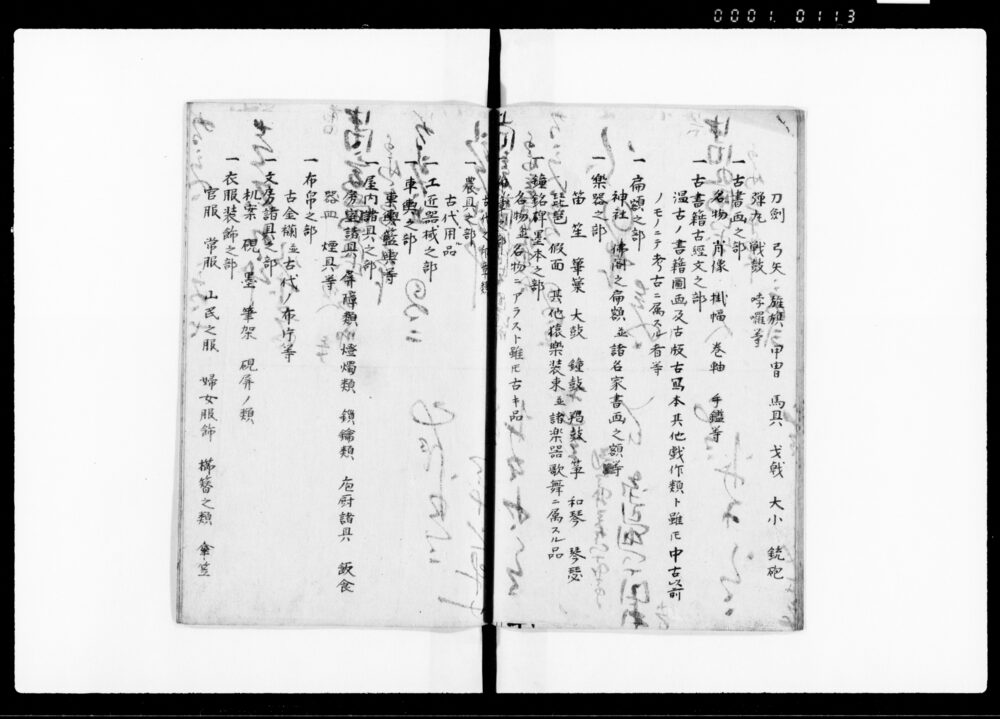 0001. 0113
刀劍 弓矢 旌旗 甲冑 馬具 戈戟 大小 銃砲
彈丸 戦鼓 哱囉等
一古書画之部
名物 肖像 掛幅 巻軸 手鑑等
一古書籍古經文之部
温古ノ書籍圖画及古版古寫本其他戯作類ト雖𪜈中古以前
ノモノニテ考古ニ属スル者等
一扁額之部
神社 佛閣之扁額並諸名家書画之額等
一樂器之部
笛 笙 篳篥 大鼓 鐘鼓 羯鼓 箏 和琴 琴瑟
琵琶 假面 其他猿樂装束並諸楽器歌舞ニ属スル品
一鐘銘碑墨本之部
名物並名物ニアラスト雖𪜈古キ品
一農具之部
古代用品
一工匠器械之部
一車輿之部
車輿籃輿等
一屋内諸具之部
房室諸具 屏障類 燈燭類 鎖鑰類 庖厨諸具 飯食
器皿 煙具等
一布帛之部
古金襴並古代ノ布片等
一文房諸具之部
机案 硯 墨 筆架 硯屏ノ類
一衣服装飾之部
官服 常服 山民之服 婦女服飾 櫛簪之類 傘笠